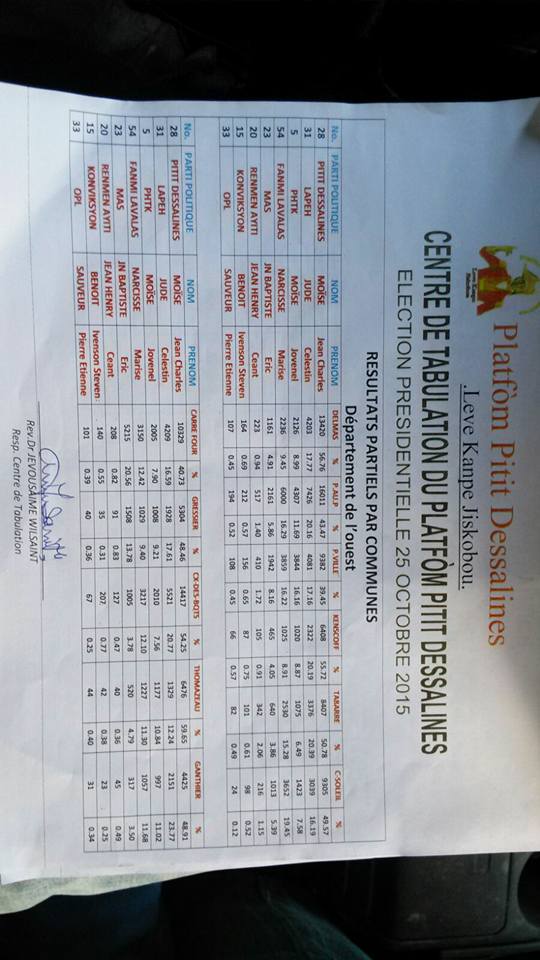 Platfòm Pitit Dessalines
.Leve Kampe Jiskobou.
Leve Kampe
Jiskobou
CENTRE DE TABULATION DU PLATFÒM PITIT DESSALINES
ELECTION PRESIDENTIELLE 25 OCTOBRE 2015
RESULTATS PARTIELS PAR COMMUNES
Département de l'ouest
No. PARTI POLITIQUE NOM PRENOM DELMAS % P.AU.P % P.VILLE % KENSCOFF % TABARRE % C-SOLEIL %
28 PITIT DESSALINES MOÏSE Jean Charles 13420 56.76 16011 43.47 9382 39.45 6408 55.72 8407 50.78 9305 49.57
31 LAPEH JUDE Celestin 4203 17.77 7426 20.16 4081 17.16 2322 20.19 3376 20.39 3039 16.19
5 PHTK MOÏSE Jovenel 2126 8.99 4307 11.69 3844 16.16 1020 8.87 1075 6.49 1423 7.58
54 FANMI LAVALAS NARCISSE Marise 2236 9.45 6000 16.29 3859 16.22 1025 8.91 2530 15.28 3652 19.45
23 MAS JN BAPTISTE Eric 1161 4.91 2161 5.86 1942 8.16 465 4.05 640 3.86 1013 5.39
20 RENMEN AYITI JEAN HENRY Ceant 223 0.94 517 1.40 410 1.72 105 0.91 342 2.06 216 1.15
15 KONVIKSYON BENOIT Ivenson Steven 164 0.69 212 0.57 156 0.65 87 0.75 101 0.61 98 0.52
33 OPL SAUVEUR Pierre Etienne 107 0.45 194 0.52 108 0.45 66 0.57 82 0.49 24 0.12
No. PARTI POLITIQUE NOM PRENOM CARREFOUR % GRESSIER % CX-DES-BQTS % THOMAZEAU % GANTHIER %
28 PITIT DESSALINES MOÏSE Jean Charles 10329 40.73 5304 48.46 14417 54.25 6476 59.65 4425 48.91
31 LAPEH JUDE Celestin 4209 16.59 1928 17.61 5521 20.77 1329 12.24 2151 23.77
5 PHTK MOÏSE Jovenel 2005 7.90 1008 9.21 2010 7.56 1177 10.84 997 11.02
54 FANMI LAVALAS NARCISSE Marise 3150 12.42 1029 9.40 3217 12.10 1227 11.30 1057 11.68
23 MAS JN BAPTISTE Eric 5215 20.56 1508 13.78 1005 3.78 520 4.79 317 3.50
20 RENMEN AYITI JEAN HENRY Ceant 208 0.82 91 0.83 127 0.47 40 0.36 45 0.49
15 KONVIKSYON BENOIT Ivenson Steven 140 0.55 35 0.31 207 0.77 42 0.38 23 0.25
33 OPL SAUVEUR Pierre Etienne 101 0.39 40 0.36 67 0.25 44 0.40 31 0.34
Rev.Dr JEVOUSAIME WILSAINT
Resp. Centre de Tabulation